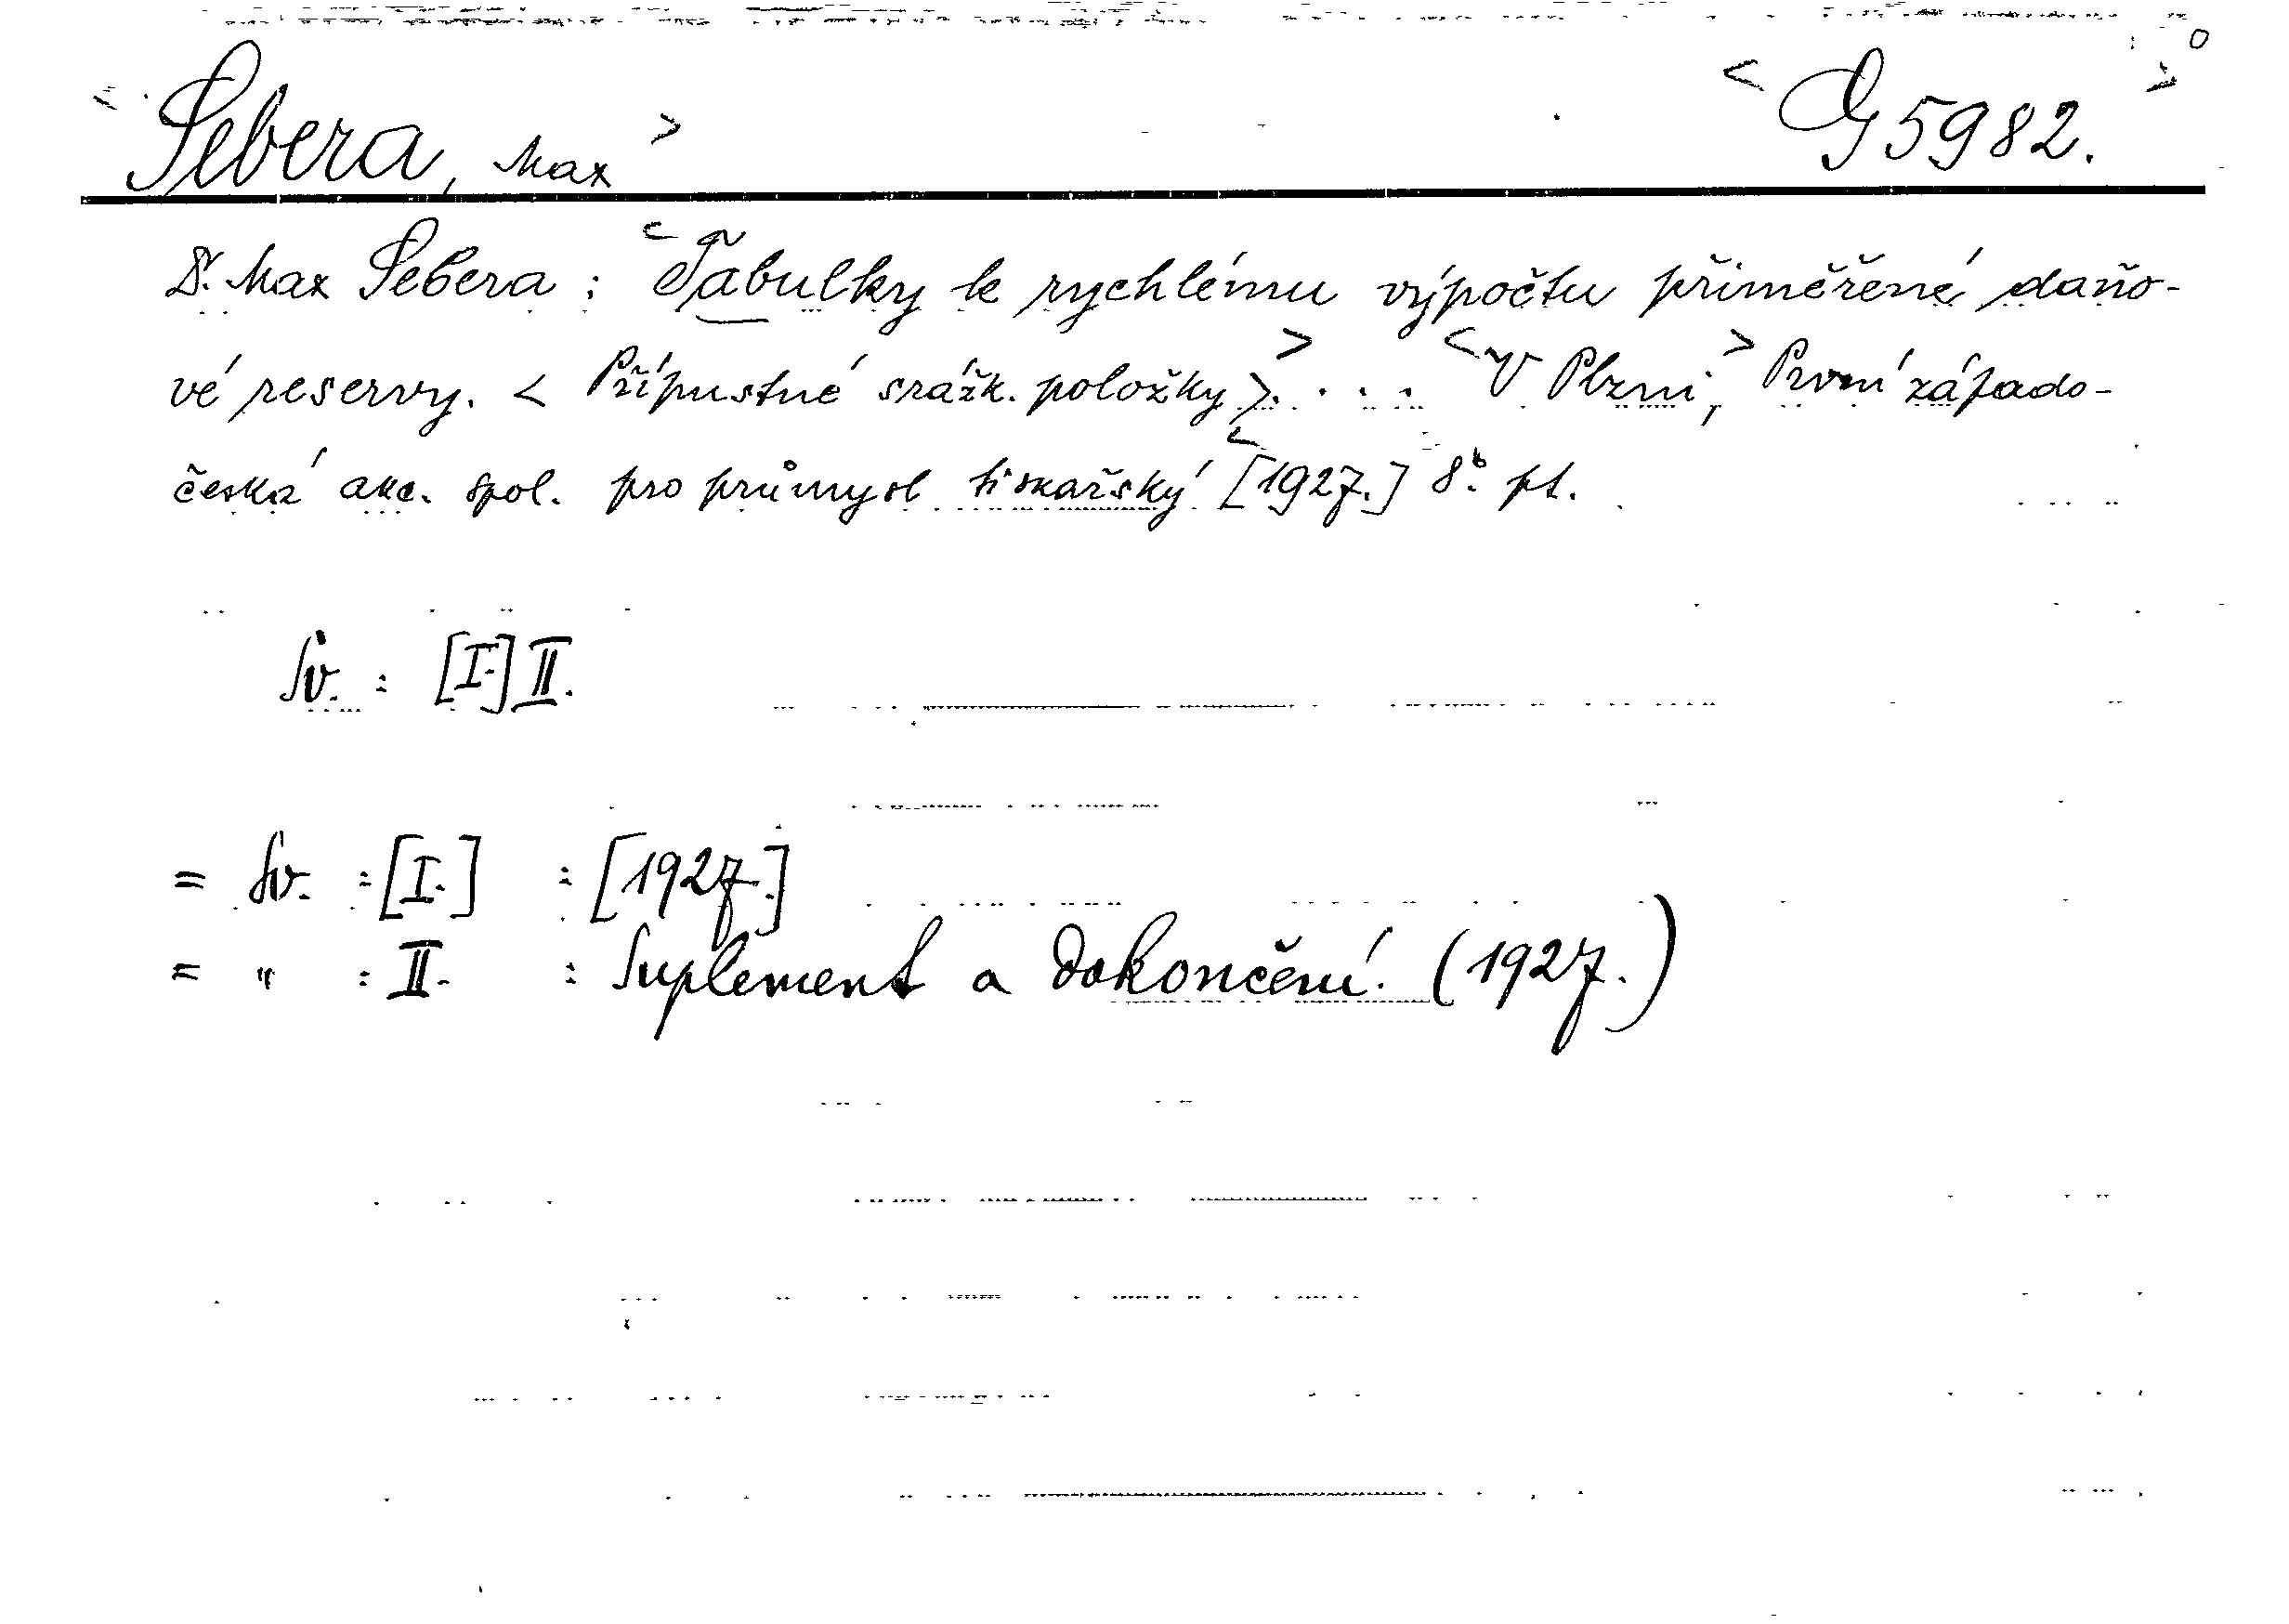 <Sebera, Max> <G 5982.>
Dr. Max Sebera : <Tabulky k rychlému výpočtu přiměřené daňo-
vé reservy. < Přípustné srážk. položky >>. . . . <V Plzni,> První západo-
česká akc. spol. pro průmysl tiskařský <[1927.] 8° pt.
Sv. : [I.] II.
= Sv. : [I.] : [1927.]
= " : II. : Suplement a dokončení. (1927.)